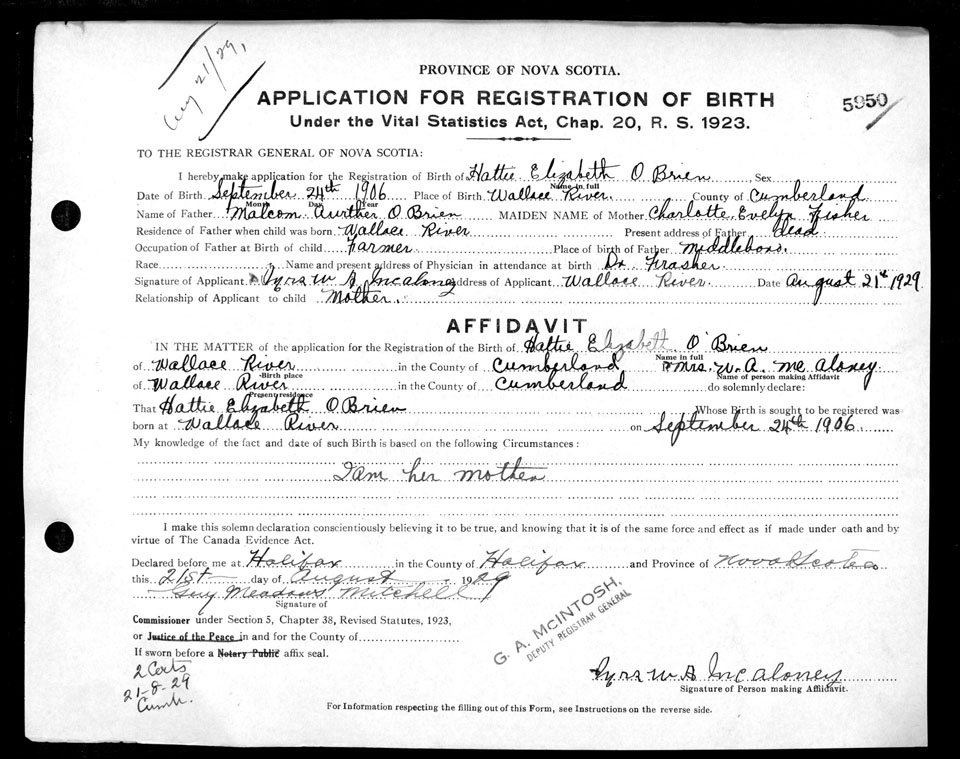 Aug 21/29,
PROVINCE OF NOVA SCOTIA.
APPLICATION FOR REGISTRATION OF BIRTH
5950
Under the Vital Statistics Act, Chap. 20, R. S. 1923.
TO THE REGISTRAR GENERAL OF NOVA SCOTIA:
I hereby make application for the Registration of Birth of Hattie Elizabeth O Brien Sex
Name in full
Date of Birth September 24th 1906 Place of Birth Wallace River. County of Cumberland
Month Day Year
Name of Father Malcom Aurther O Brien MAIDEN NAME of Mother Charlotte Evelyn Fisher
Residence of Father when child was born Wallace River Present address of Father dead
Occupation of Father at Birth of child Farmer Place of birth of Father Middleboro.
Race Name and present address of Physician in attendance at birth Dr Frasher
Signature of Applicant Mrs W A McAloney Address of Applicant Wallace River. Date August 21st 1929.
Relationship of Applicant to child Mother.
AFFIDAVIT
IN THE MATTER of the application for the Registration of the Birth of Hattie Elizabeth O'Brien
Name in full
of Wallace River in the County of Cumberland Mrs. W. A. Mc Aloney
Birth place Name of person making Affidavit
of Wallace River in the County of Cumberland do solemnly declare:
Present residence
That Hattie Elizabeth O Brien Whose Birth is sought to be registered was
born at Wallace River on September 24th 1906.
My knowledge of the fact and date of such Birth is based on the following Circumstances:
I am her mother
I make this solemn declaration conscientiously believing it to be true, and knowing that it is of the same force and effect as if made under oath and by
virtue of The Canada Evidence Act.
Declared before me at Halifax in the County of Halifax and Province of Nova Scotia
this 21st day of August 1929
Guy Meadows Mitchell
Signature of
Commissioner under Section 5, Chapter 38, Revised Statutes, 1923,
or Justice of the Peace in and for the County of
If sworn before a Notary Public affix seal.
G. A. MCINTOSH,
DEPUTY REGISTRAR GENERAL
2 Certs
21-8-29
Cumb.
Mrs W A McAloney
Signature of Person making Affidavit.
For Information respecting the filling out of this Form, see Instructions on the reverse side.